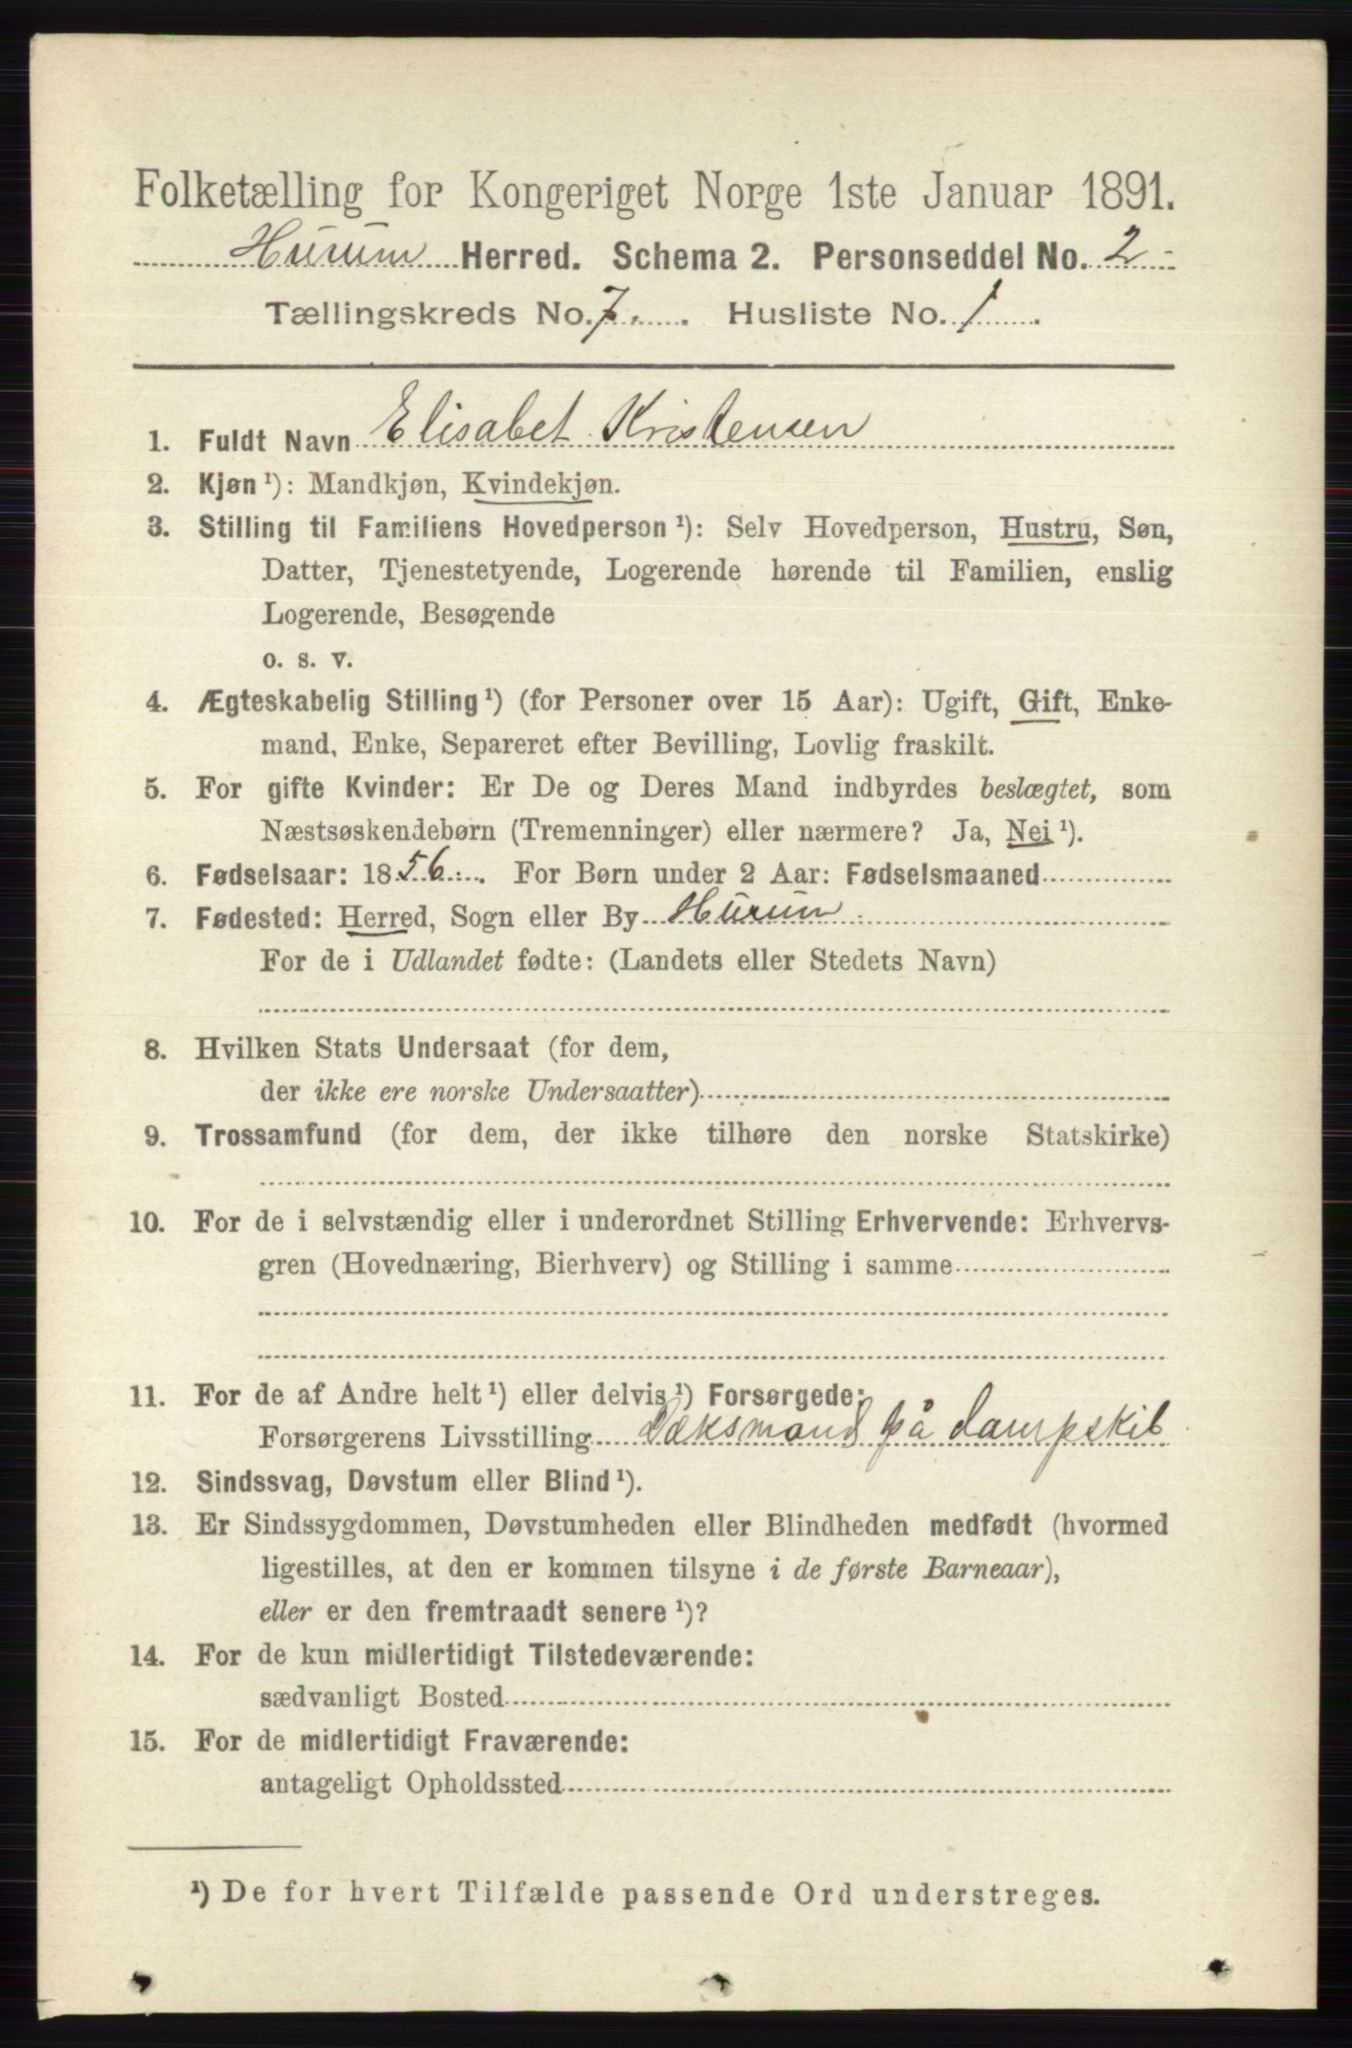 Folketælling for Kongeriget Norge 1ste Januar 1891.
Hurum Herred. Schema 2. Personseddel No. 2
Tællingskreds No. 7. Husliste No. 1
1. Fuldt Navn Elisabet Kristensen
2. Kjøn ¹): Mandkjøn, Kvindekjøn.
3. Stilling til Familiens Hovedperson ¹): Selv Hovedperson, Hustru, Søn,
Datter, Tjenestetyende, Logerende hørende til Familien, enslig
Logerende, Besøgende
o. s. v.
4. Ægteskabelig Stilling ¹) (for Personer over 15 Aar): Ugift, Gift, Enke-
mand, Enke, Separeret efter Bevilling, Lovlig fraskilt.
5. For gifte Kvinder: Er De og Deres Mand indbyrdes beslægtet, som
Næstsøskendebørn (Tremenninger) eller nærmere? Ja, Nei ¹).
6. Fødselsaar: 1856. For Børn under 2 Aar: Fødselsmaaned
7. Fødested: Herred, Sogn eller By Hurum
For de i Udlandet fødte: (Landets eller Stedets Navn)
8. Hvilken Stats Undersaat (for dem,
der ikke ere norske Undersaatter)
9. Trossamfund (for dem, der ikke tilhøre den norske Statskirke)
10. For de i selvstændig eller i underordnet Stilling Erhvervende: Erhvervs-
gren (Hovednæring, Bierhverv) og Stilling i samme
11. For de af Andre helt ¹) eller delvis ¹) Forsørgede:
Forsørgerens Livsstilling Dæksmand på dampskib
12. Sindssvag, Døvstum eller Blind ¹).
13. Er Sindssygdommen, Døvstumheden eller Blindheden medfødt (hvormed
ligestilles, at den er kommen tilsyne i de første Barneaar),
eller er den fremtraadt senere ¹)?
14. For de kun midlertidigt Tilstedeværende:
sædvanligt Bosted
15. For de midlertidigt Fraværende:
antageligt Opholdssted
¹) De for hvert Tilfælde passende Ord understreges.